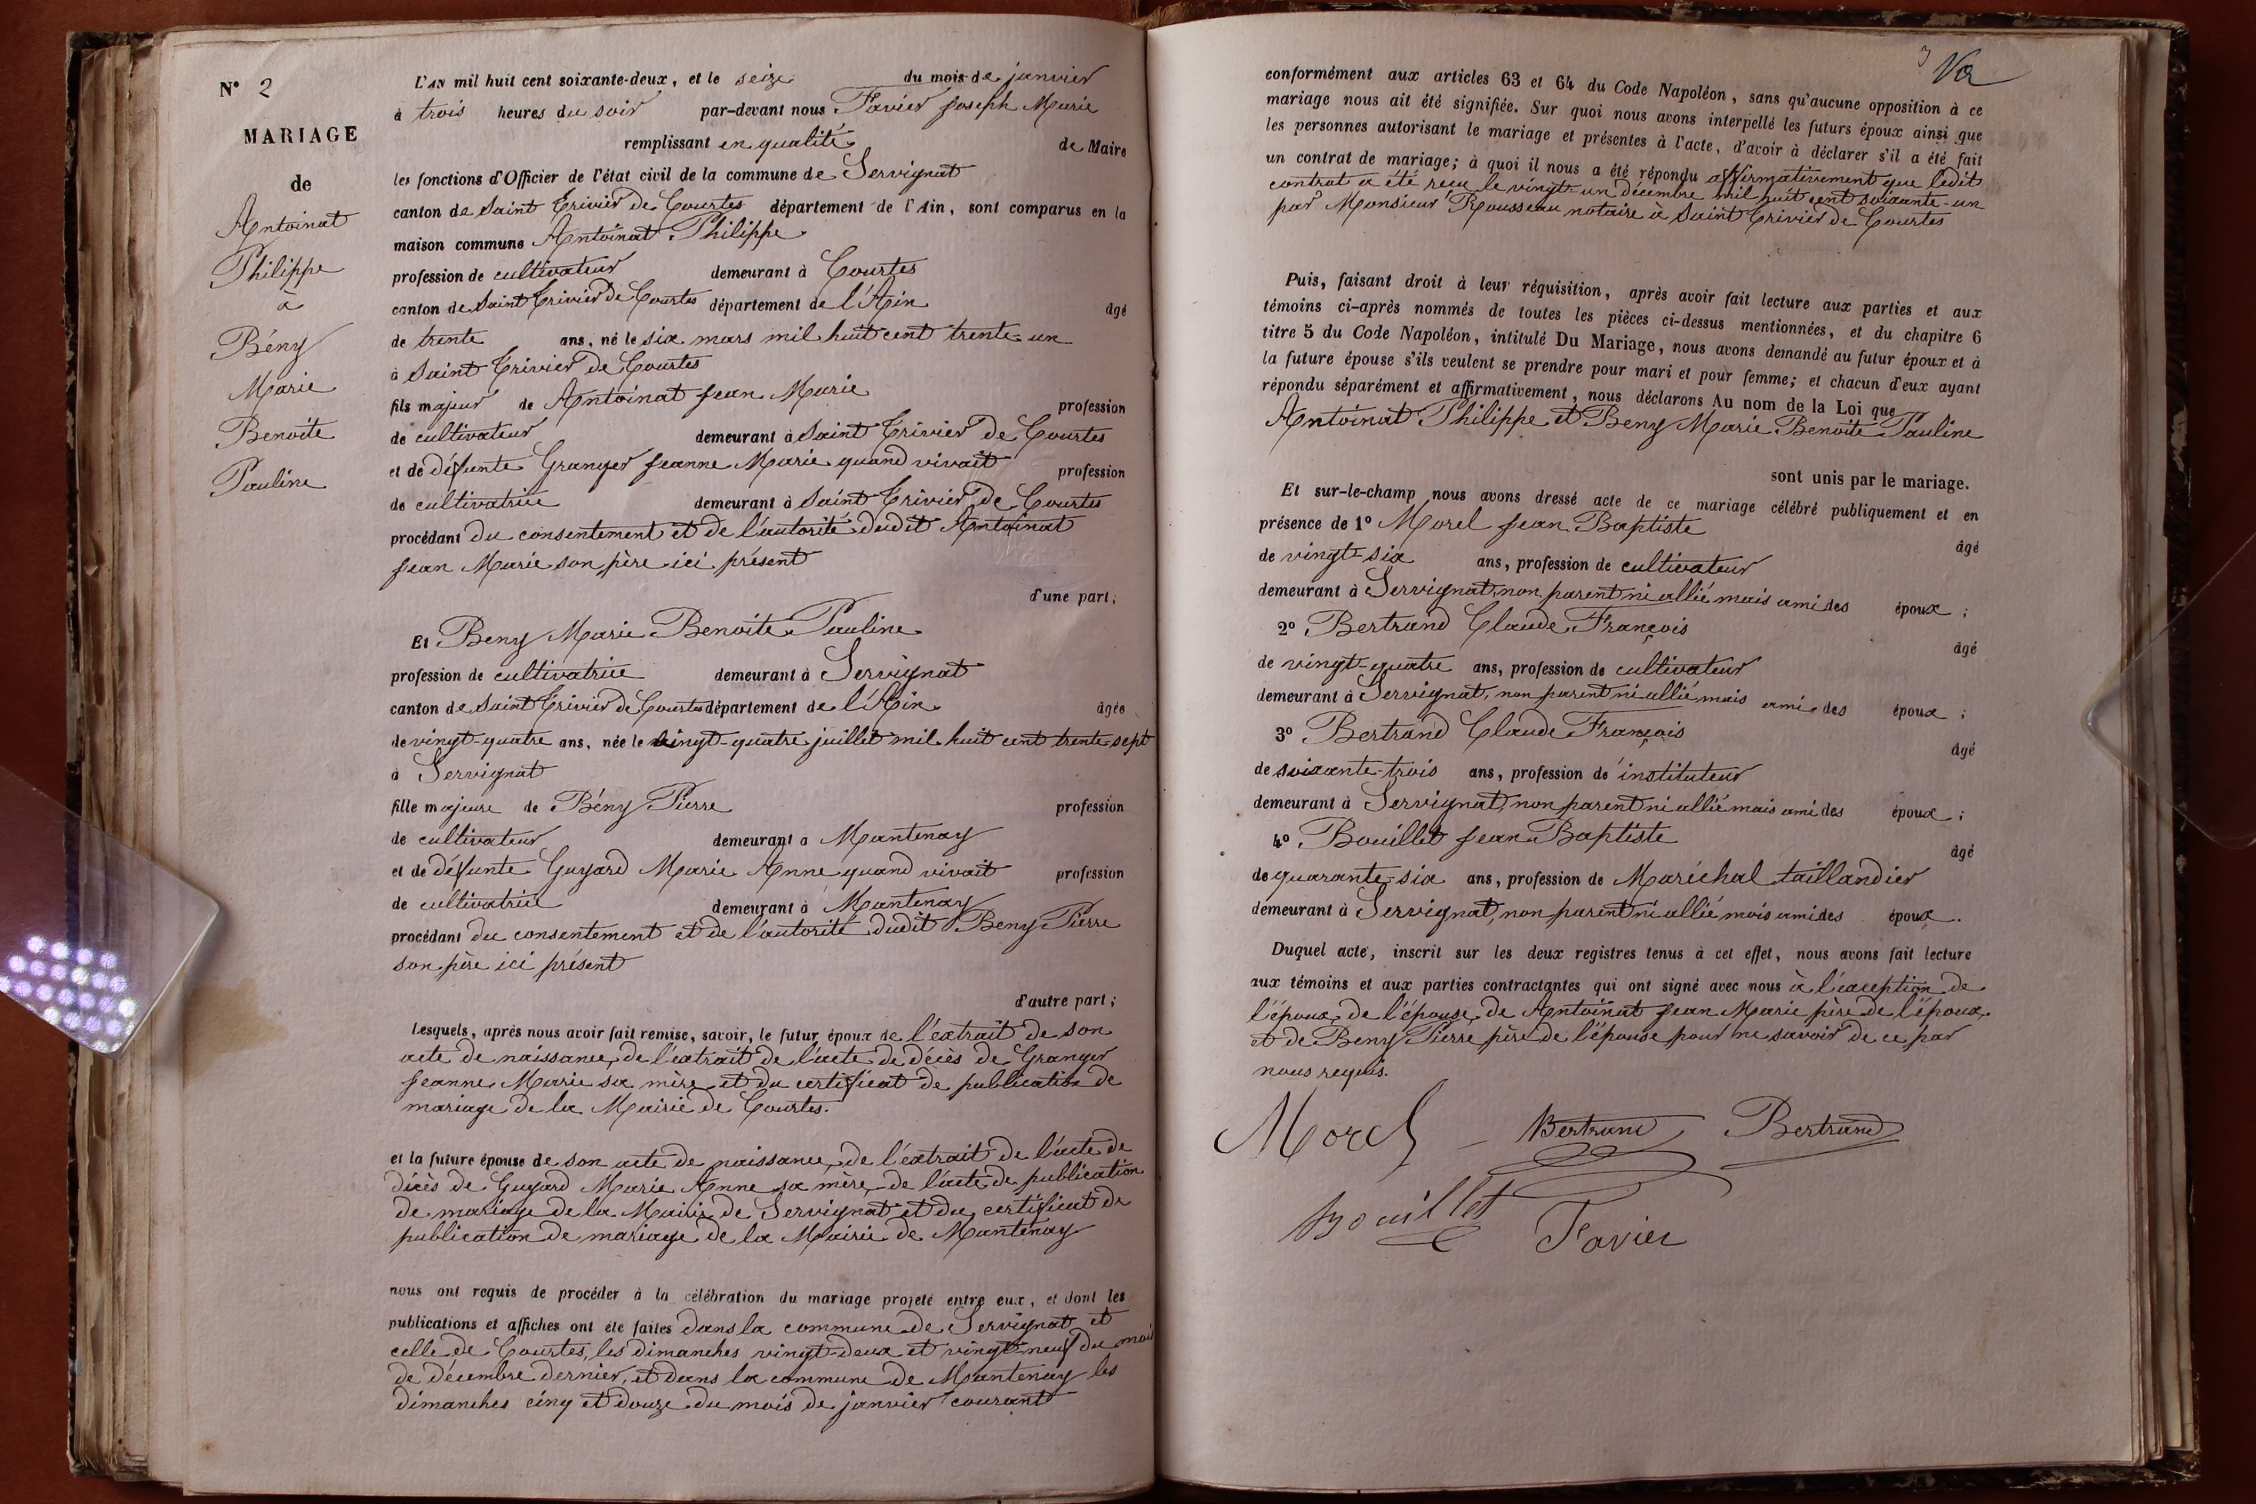 N° 2
MARIAGE
de
Antoinat
Philippe
à
Bény
Marie
Benoite
Pauline
L'AN mil huit cent soixante-deux, et le seize du mois de janvier
à trois heures du soir par-devant nous Favier Joseph Marie
remplissant en qualité de Maire
les fonctions d'Officier de l'état civil de la commune de Servignat
canton de Saint Trivier de Courtes département de l'Ain, sont comparus en la
maison commune Antoinat Philippe
profession de cultivateur demeurant à Courtes
canton de Saint Trivier de Courtes département de l'Ain âgé
de trente ans, né le six mars mil huit cent trente-un
à Saint Trivier de Courtes
fils majeur de Antoinat Jean Marie profession
de cultivateur demeurant à Saint Trivier de Courtes
et de défunte Granger Jeanne Marie quand vivait profession
de cultivatrice demeurant à Saint Trivier de Courtes
procédant du consentement et de l'autorité dudit Antoinat
Jean Marie son père ici présent
d'une part;
Et Beny Marie Benoite Pauline
profession de cultivatrice demeurant à Servignat
canton de Saint Trivier de Courtes département de l'Ain âgée
de vingt-quatre ans, née le vingt-quatre juillet mil huit cent trente sept
à Servignat
fille majeure de Bény Pierre profession
de cultivateur demeurant à Mantenay
et de défunte Guyard Marie Anne quand vivait profession
de cultivatrice demeurant à Mantenay
procédant du consentement et de l'autorité dudit Beny Pierre
son père ici présent
d'autre part;
Lesquels, après nous avoir fait remise, savoir, le futur époux de l'extrait de son
acte de naissance, de l'extrait de l'acte de décès de Granger
Jeanne Marie sa mère et du certificat de publication de
mariage de la Mairie de Courtes.
et la future épouse de son acte de naissance, de l'extrait de l'acte de
décès de Guyard Marie Anne sa mère, de l'acte de publication
de mariage de la Mairie de Servignat et du certificat de
publication de mariage de la Mairie de Mantenay
nous ont requis de procéder à la célébration du mariage projeté entre eux, et dont les
publications et affiches ont été faites dans la commune de Servignat et
celle de Courtes, les dimanches vingt-deux et vingt-neuf du mois
de décembre dernier, et dans la commune de Mantenay les
dimanches cinq et douze du mois de janvier courant
3
conformément aux articles 63 et 64 du Code Napoléon, sans qu'aucune opposition à ce
mariage nous ait été signifiée. Sur quoi nous avons interpellé les futurs époux ainsi que
les personnes autorisant le mariage et présentes à l'acte, d'avoir à déclarer s'il a été fait
un contrat de mariage; à quoi il nous a été répondu affirmativement que ledit
contrat a été reçu le vingt-un décembre mil huit cent soixante-un
par Monsieur Rousseau notaire à Saint Trivier de Courtes
Puis, faisant droit à leur réquisition, après avoir fait lecture aux parties et aux
témoins ci-après nommés de toutes les pièces ci-dessus mentionnées, et du chapitre 6
titre 5 du Code Napoléon, intitulé Du Mariage, nous avons demandé au futur époux et à
la future épouse s'ils veulent se prendre pour mari et pour femme; et chacun d'eux ayant
répondu séparément et affirmativement, nous déclarons Au nom de la Loi que
Antoinat Philippe et Beny Marie Benoite Pauline
sont unis par le mariage.
Et sur-le-champ nous avons dressé acte de ce mariage célébré publiquement et en
présence de 1° Morel Jean Baptiste âgé
de vingt-six ans, profession de cultivateur
demeurant à Servignat, non parent ni allié mais ami des époux;
2° Bertrand Claude François âgé
de vingt-quatre ans, profession de cultivateur
demeurant à Servignat, non parent ni allié mais ami des époux;
3° Bertrand Claude François âgé
de soixante-trois ans, profession de instituteur
demeurant à Servignat, non parent ni allié mais ami des époux;
4° Bouillet Jean Baptiste âgé
de quarante-six ans, profession de Maréchal taillandier
demeurant à Servignat, non parent ni allié mais ami des époux.
Duquel acte, inscrit sur les deux registres tenus à cet effet, nous avons fait lecture
aux témoins et aux parties contractantes qui ont signé avec nous à l'exception de
l'époux, de l'épouse, de Antoinat Jean Marie père de l'époux,
et de Beny Pierre père de l'épouse pour ne savoir de ce par
nous requis.
Morel Bertrand Bertrand
Bouillet
Favier